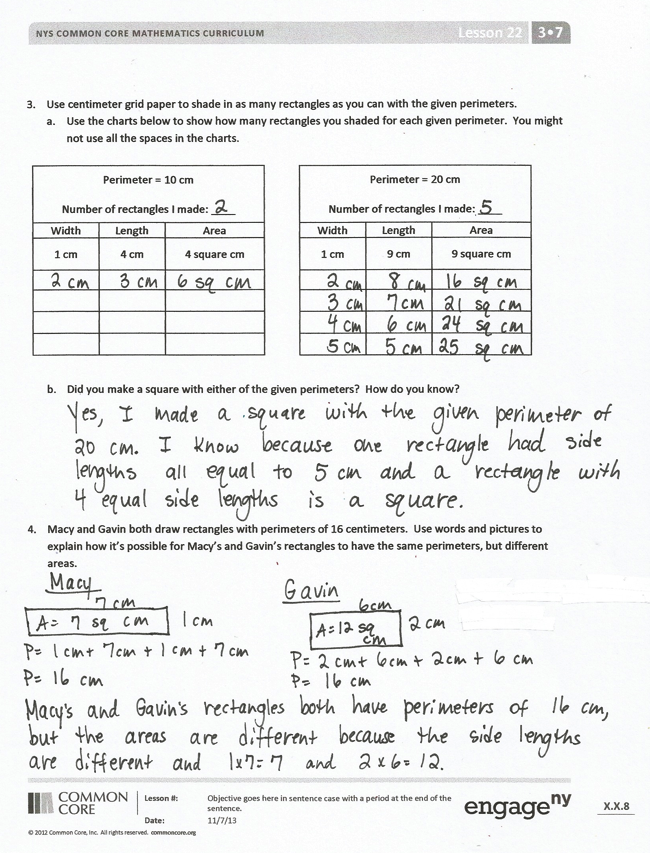 NYS COMMON CORE MATHEMATICS CURRICULUM Lesson 22 3•7
3. Use centimeter grid paper to shade in as many rectangles as you can with the given perimeters.
a. Use the charts below to show how many rectangles you shaded for each given perimeter. You might
not use all the spaces in the charts.
Perimeter = 10 cm
Number of rectangles I made: 2
Width Length Area
1 cm 4 cm 4 square cm
2 cm 3 cm 6 sq cm
Perimeter = 20 cm
Number of rectangles I made: 5
Width Length Area
1 cm 9 cm 9 square cm
2 cm 8 cm 16 sq cm
3 cm 7 cm 21 sq cm
4 cm 6 cm 24 sq cm
5 cm 5 cm 25 sq cm
b. Did you make a square with either of the given perimeters? How do you know?
Yes, I made a square with the given perimeter of
20 cm. I know because one rectangle had side
lengths all equal to 5 cm and a rectangle with
4 equal side lengths is a square.
4. Macy and Gavin both draw rectangles with perimeters of 16 centimeters. Use words and pictures to
explain how it's possible for Macy's and Gavin's rectangles to have the same perimeters, but different
areas.
Macy
7 cm
A= 7 sq cm 1 cm
P= 1cm+ 7cm + 1 cm + 7 cm
P= 16 cm
Gavin
6cm
A=12 sq
cm
2 cm
P= 2 cm+ 6cm+ 2cm + 6 cm
P= 16 cm
Macy's and Gavin's rectangles both have perimeters of 16 cm,
but the areas are different because the side lengths
are different and 1x7=7 and 2x6=12.
COMMON
CORE
Lesson #: Objective goes here in sentence case with a period at the end of the
sentence.
Date: 11/7/13
engageny
X.X.8
© 2012 Common Core, Inc. All rights reserved. commoncore.org